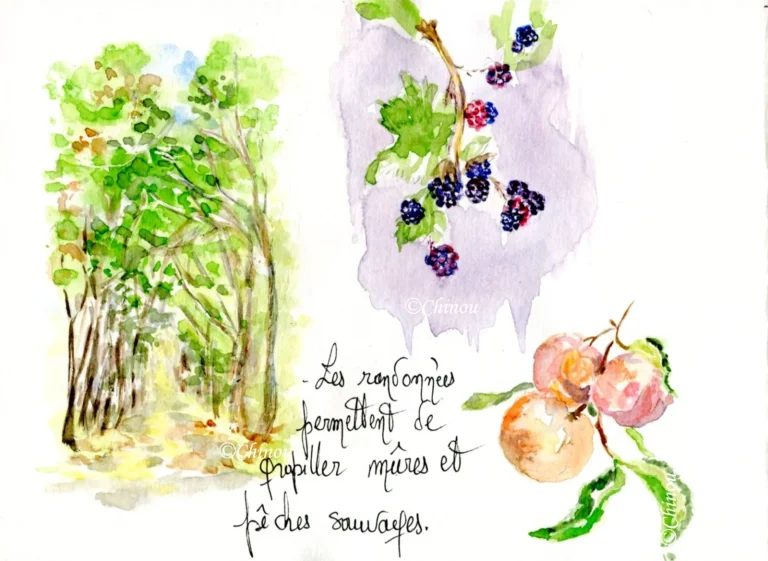 ©Chinou
- Les randonnées
permettent de
©Chinou
grapiller mûres et
pêches sauvages.
©Chinou